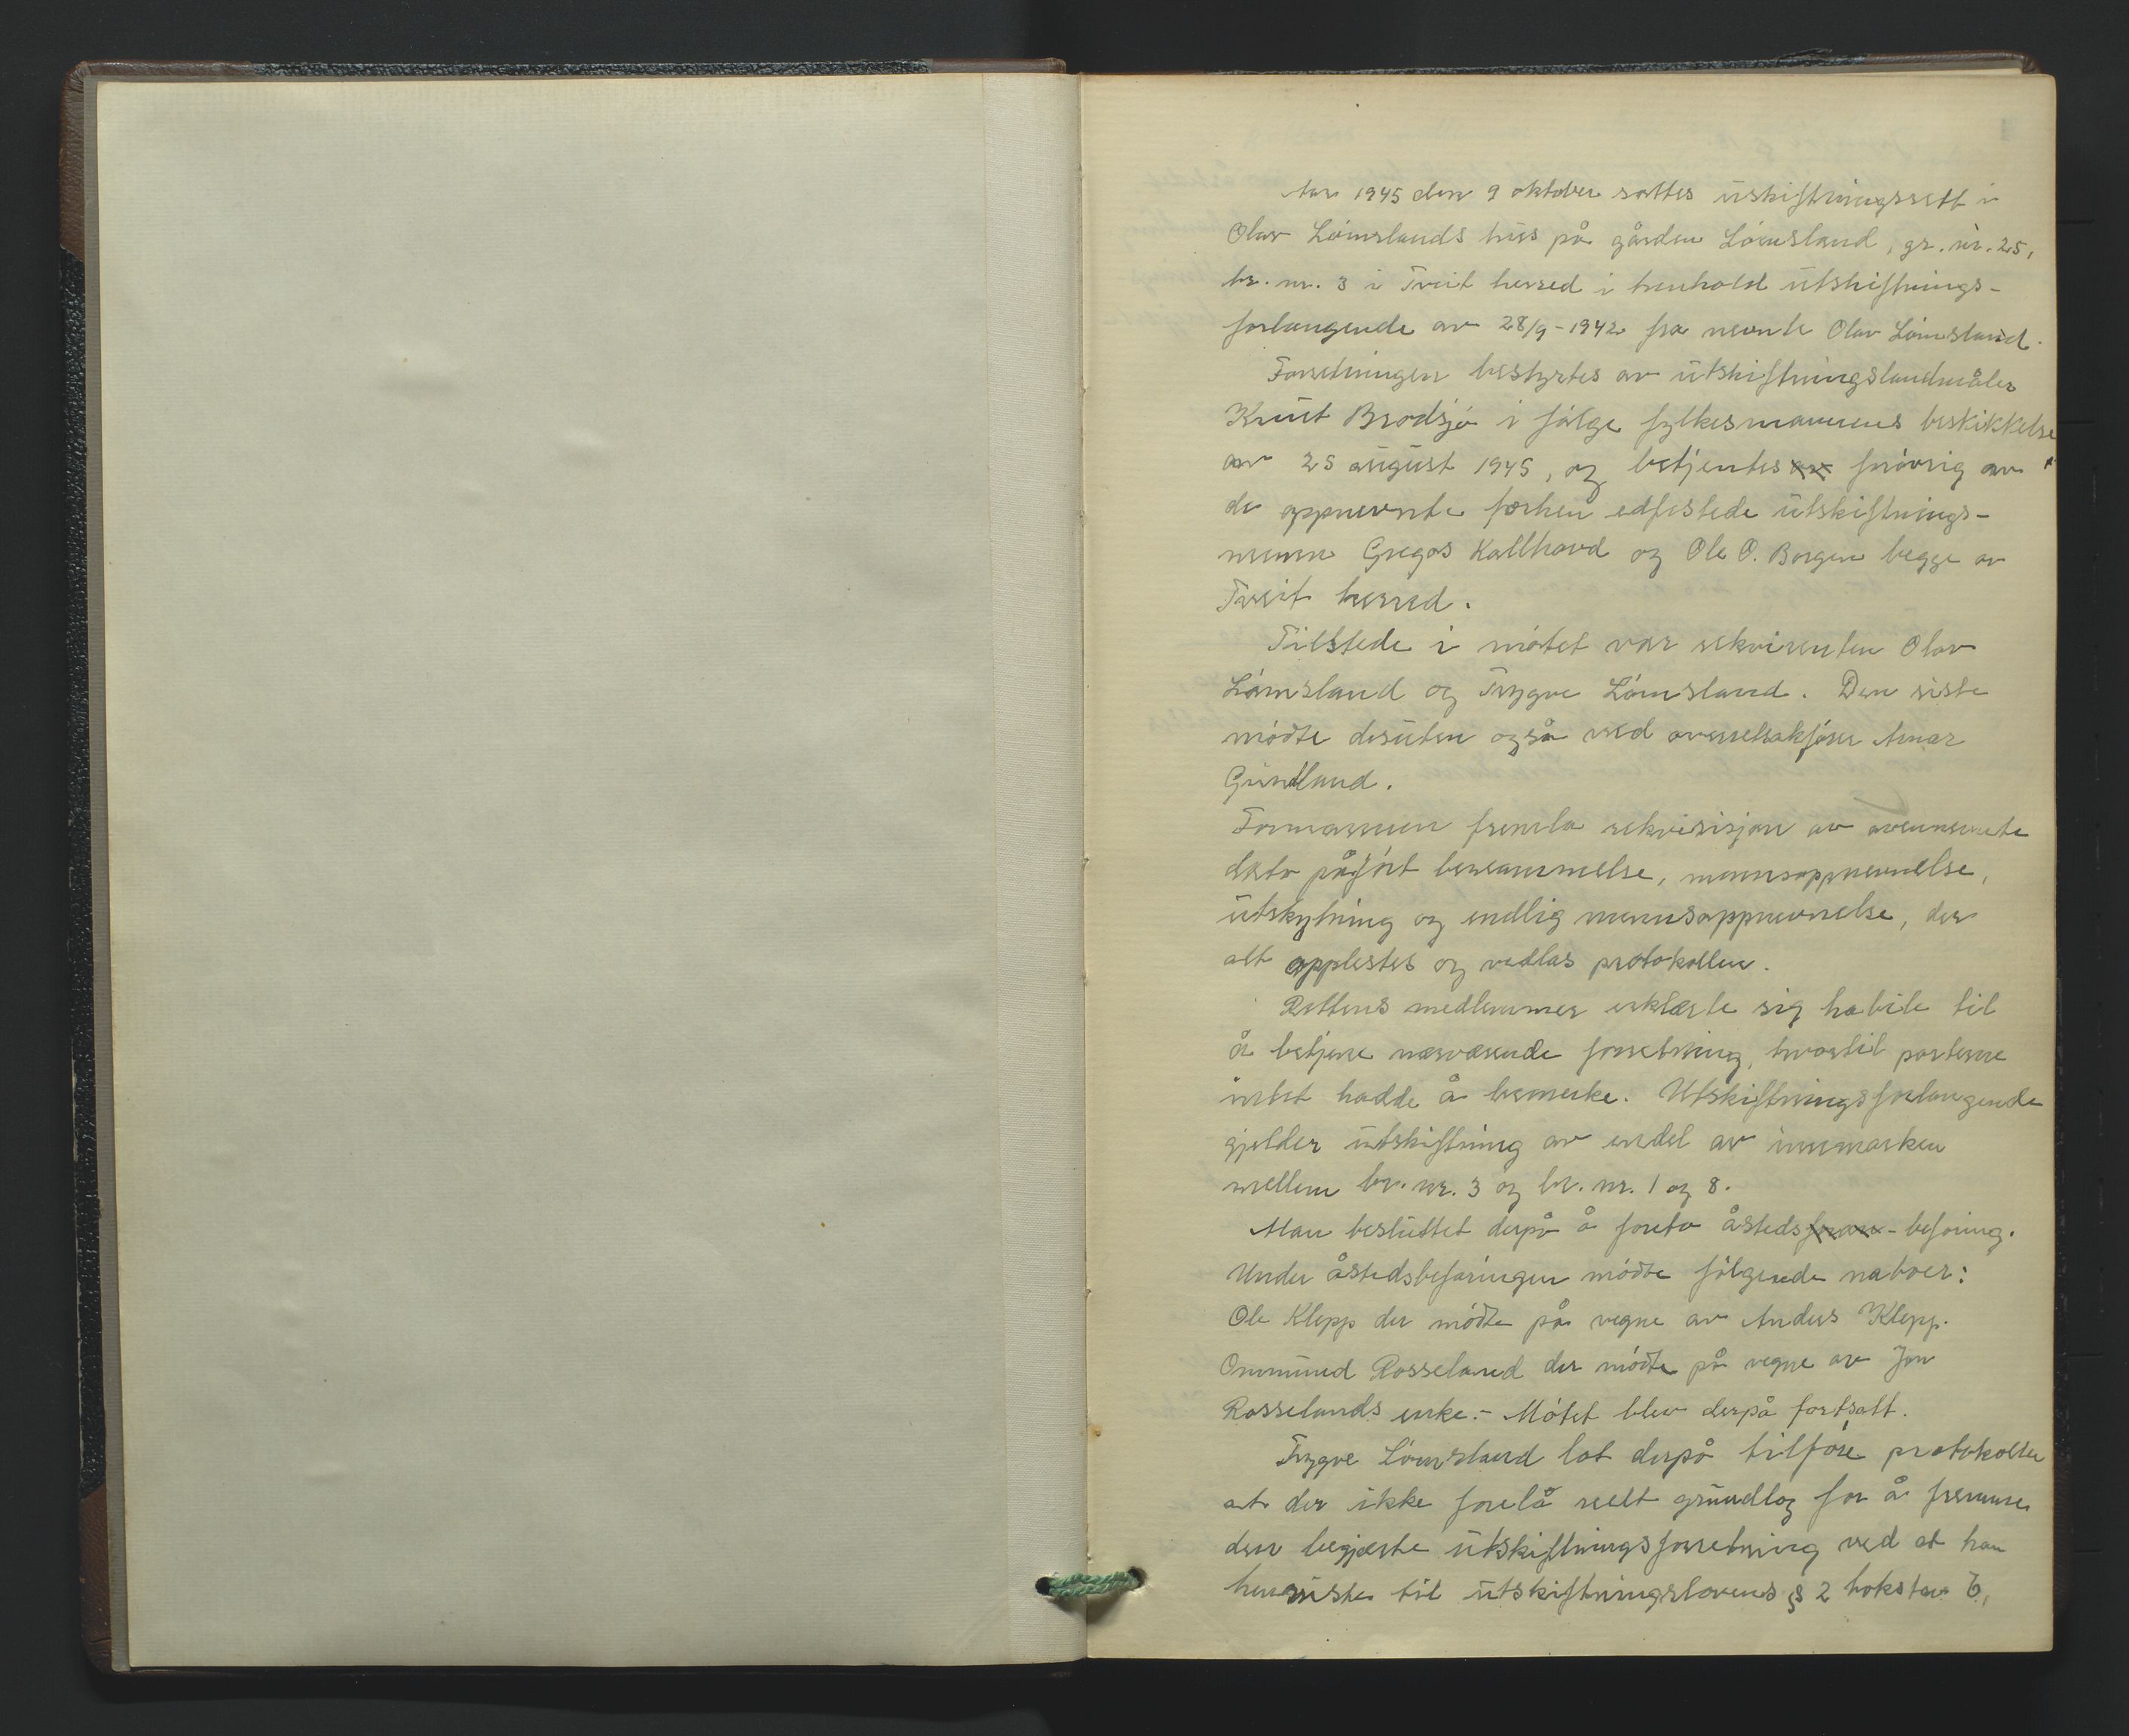 År 1945 den 9 oktober sattes utskiftningsrett i
Olav Lömslands hus på gården Lömsland, gr. nr. 25,
br. nr. 3 i Tveit herred i henhold utskiftnings-
forlangende av 28/9-1942 fra nevnte Olav Lömsland.
Forretningen bestyrtes av utskiftningslandmåler
Knut Brodsjö i følge fylkesmannens beskikkelse
av 25 august 1945, og betjentes av forövrig av
de oppnevnte forhen edfestede utskiftnings-
menn Gregos Kallhovd og Ole O. Borgen begge av
Tveit herred.
Tilstede i mötet var rekvirenten Olav
Lömsland og Trygve Lömsland. Den siste
mödte desuten også ved overrettsakförer Arnar
Gundland.
Formannen fremla rekvisisjon av ovennevnte
dato påfört berammelse, mannsoppnevnelse,
utskytning og endlig mannsoppnevnelse, der
alt opplestes og vedlas protokollen.
Rettens medlemmer erklærte sig habile til
å betjene nærværende forretning, hvortil partene
intet hadde å bemerke. Utskiftningsforlangende
gjelder utskiftning av endel av innmarken
mellem br. nr. 3 og br. nr. 1 og 8.
Man besluttet derpå å foreta åsteds - befaring.
Under åstedsbefaringen mödte fölgende naboer:
Ole Klepp der mödte på vegne av Anders Klepp.
Ommund Rosseland der mödte på vegne av Jon
Rosselands enke. - Mötet blev derpå fortsatt.
Trygve Lömsland lot derpå tilföre protokollen
at der ikke forelå reelt grundlag for å fremme
den begjærte utskiftningsforretning ved at han
henviste til utskiftningslovens § 2 bokstav b,